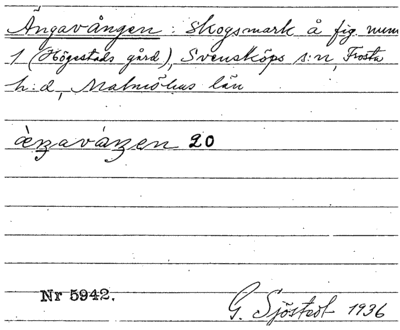 Ängavången: Skogsmark å fig. num
1 (Högestads gård), Svensköps s:n, Frosta
h:d, Malmöhus län
20
Nr 5942.
G. Sjöstedt 1936